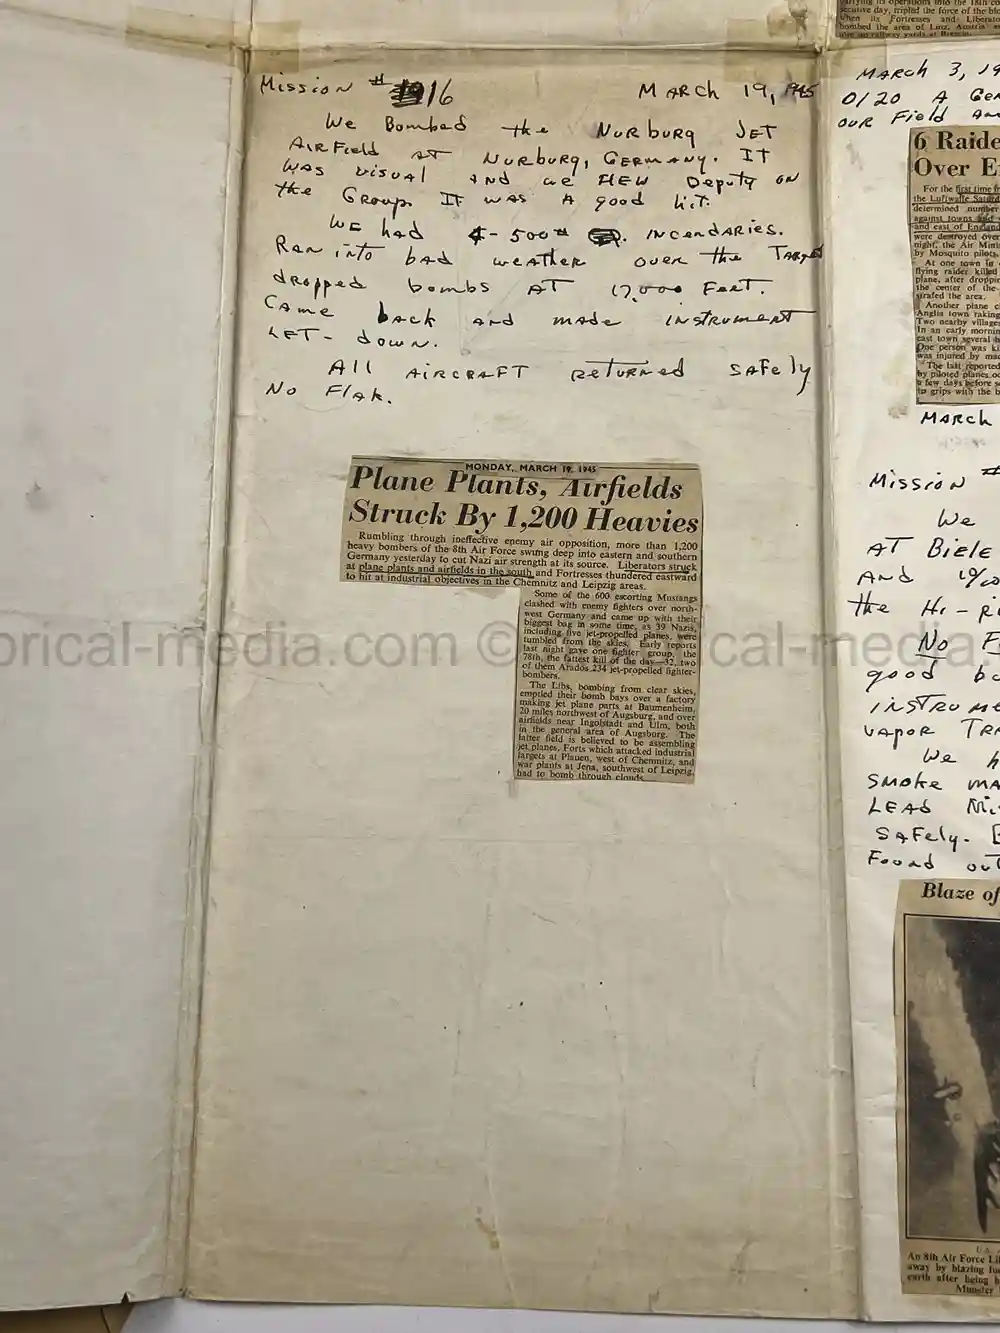 Mission # 16 MARCH 19, 1945
We Bombed the NURBURG JET
AIRField AT NURBURG, GERMANY. IT
WAS VISUAL AND we FlEW Deputy ON
the Group. IT was A good hit.
We had 4-500# INCENDARIES.
RAN into bad weather over the TARGET
dropped bombs AT 17,000 FeeT.
CAME back AND made INSTRUMENT
LET-down.
All AIRCRAFT RETURNED SAFely
No FlAk.
MONDAY, MARCH 19, 1945
Plane Plants, Airfields
Struck By 1,200 Heavies
Rumbling through ineffective enemy air opposition, more than 1,200
heavy bombers of the 8th Air Force swung deep into eastern and southern
Germany yesterday to cut Nazi air strength at its source. Liberators struck
at plane plants and airfields in the south and Fortresses thundered eastward
to hit at industrial objectives in the Chemnitz and Leipzig areas.
Some of the 600 escorting Mustangs
clashed with enemy fighters over north-
west Germany and came up with their
biggest bag in some time, as 39 Nazis,
including five jet-propelled planes, were
tumbled from the skies. Early reports
last night gave one fighter group, the
78th, the fattest kill of the day—32, two
of them Arados 234 jet-propelled fighter-
bombers.
The Libs, bombing from clear skies,
emptied their bomb bays over a factory
making jet plane parts at Baumenheim,
20 miles northwest of Augsburg, and over
airfields near Ingolstadt and Ulm, both
in the general area of Augsburg. The
latter field is believed to be assembling
jet planes. Forts which attacked industrial
targets at Plauen, west of Chemnitz, and
war plants at Jena, southwest of Leipzig,
had to bomb through clouds.
secutive day, tripled the force of the
when its Fortresses and
bombed the area of Linz, Austria
MARCH 3, 19
0120 A
OUR Field
6 Raide
Over E
For the first time
the Luftwaffe
determined number
against towns and
and east of England
were destroyed over
night, the Air
by Mosquito pilots,
At one town in
flying raider killed
plane, after
the center of the
strafed the area.
Another plane
Anglia town raking
Two nearby villages
In an early
east town several
One person was
was injured by
The last reported
by piloted planes
a few days before
to grips with the
MARCH
Mission #
We
AT
AND
the Hi-
No
good
INSTRUME
VAPOR
We h
SMOKE
LEAD
SAFely.
Found out
Blaze of
An 8th Air Force
away by blazing
earth after being
Munster
orical-media.com © cal-media